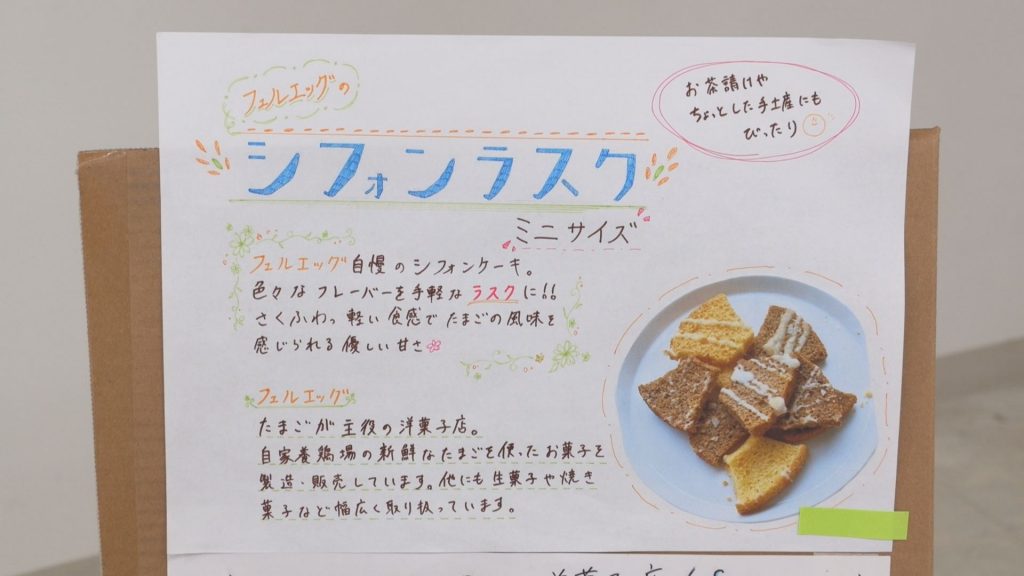 フェルエッグの
お茶請けや
ちょっとした手土産にも
ぴったり
シフォンラスク
ミニサイズ
フェルエッグ自慢のシフォンケーキ。
色々なフレーバーを手軽なラスクに!!
さくふわっ軽い食感でたまごの風味を
感じられる優しい甘さ
フェルエッグ
たまごが主役の洋菓子店。
自家養鶏場の新鮮なたまごを使ったお菓子を
製造・販売しています。他にも生菓子や焼き
菓子など幅広く取り扱っています。